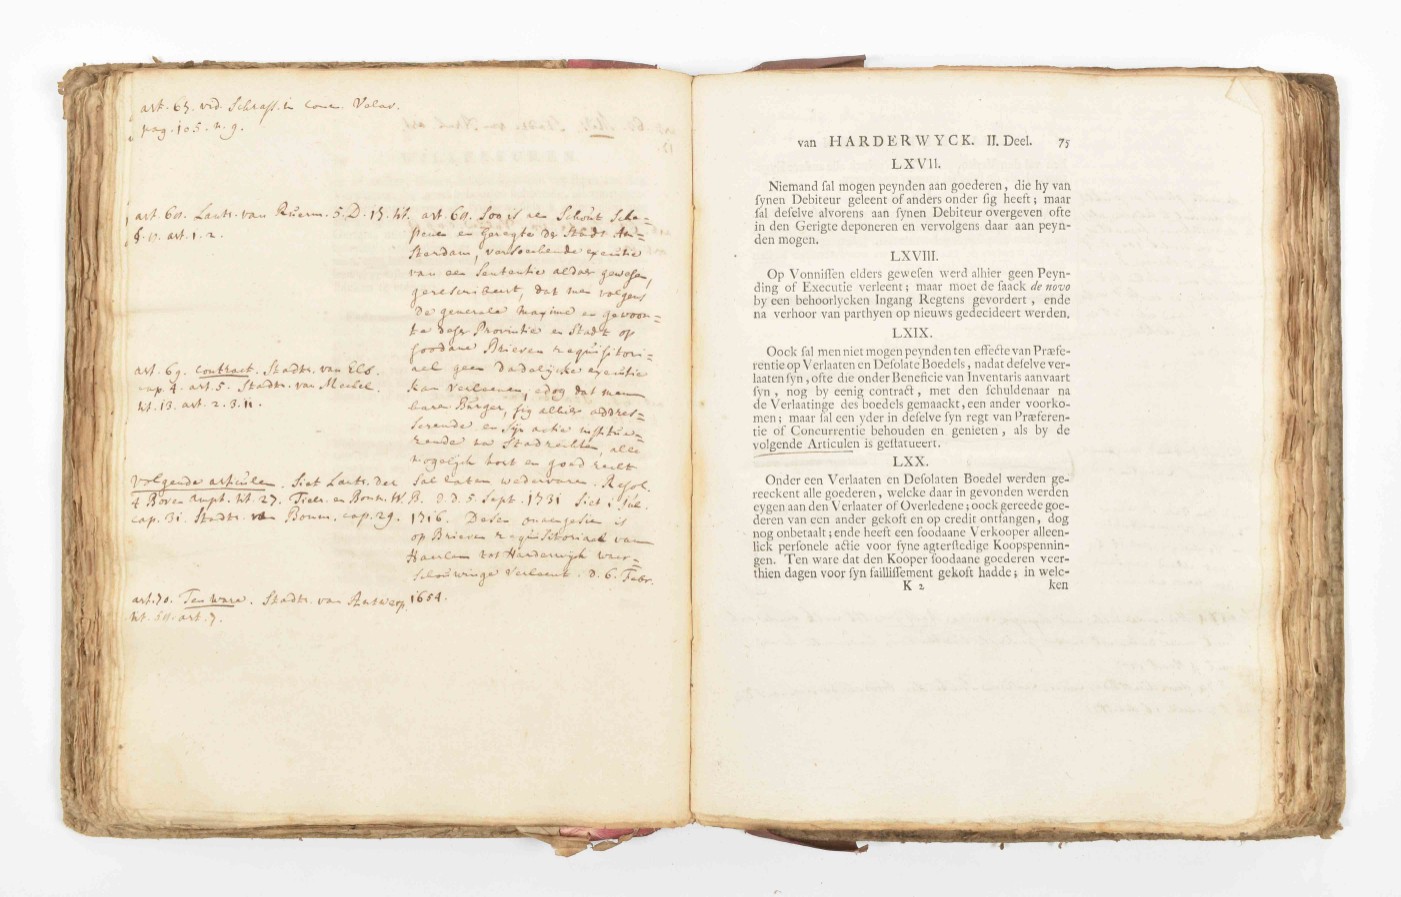 art. 65. vid. Schrass. in
pag. 105. n. 9.
art. 68. Lantr. van Ruerm. 5. D. 15. tit.
art. 1. 2.
art. 69. contract. Stadtr. van Elb.
cap. 4. art. 5. Stadtr. van Mechel.
tit. 13. art. 2. 3. 11.
volgende articulen. Siet Lantr. der
4 Boven Ampt. tit. 27. Tieler. en Bom. W.
cap. 31. Stadtr. van Bomm. cap. 29.
art. 70. Ten ware. Stadtr. van Antwerp.
tit. art. 7.
art. 68. Soo is aen Schout Sche-
penen en Geregte der Stadt Am-
sterdam, versoeckende executie
van een Sententie aldaar gewesen,
gerescribeert, dat men volgens
de generale maxime en gewoon-
te deser Provintie en Stadt op
soodane Brieven requisitori-
ael geen dadelijcke executie
kan verleenen, edog dat men
haren Burger, sig alhier addres-
serende en sijn actie institue-
rende na Stadrechten, alle
mogelijck kort en goed recht
sal laten wedervaren. Resol.
B. d. d. 5. Sept. 1731 Siet 1. Jul.
1716. Desen onaengesien is
op Brieven requisitoriael van
Haerlem tot Harderwijk waer-
schouwinge verleent. d. 6. Febr.
1654.
van HARDERWYCK. II. Deel. 75
LXVII.
Niemand ſal mogen peynden aan goederen, die hy van
ſynen Debiteur geleent of anders onder ſig heeft; maar
ſal deſelve alvorens aan ſynen Debiteur overgeven ofte
in den Gerigte deponeren en vervolgens daar aan peyn-
den mogen.
LXVIII.
Op Vonniſſen elders geweſen werd alhier geen Peyn-
ding of Executie verleent; maar moet de ſaack de novo
by een behoorlycken Ingang Regtens gevordert, ende
na verhoor van parthyen op nieuws gedecideert werden.
LXIX.
Oock ſal men niet mogen peynden ten effecte van Præfe-
rentie op Verlaaten en Deſolate Boedels, nadat deſelve ver-
laaten ſyn, ofte die onder Beneficie van Inventaris aanvaart
ſyn, nog by eenig contract, met den ſchuldenaar na
de Verlaatinge des boedels gemaackt, een ander voorko-
men; maar ſal een yder in deſelve ſyn regt van Præferen-
tie of Concurrentie behouden en genieten, als by de
volgende Articulen is geſtatueert.
LXX.
Onder een Verlaaten en Deſolaten Boedel werden ge-
reeckent alle goederen, welcke daar in gevonden werden
eygen aan den Verlaater of Overledene; oock gereede goe-
deren van een ander gekoft en op credit ontfangen, dog
nog onbetaalt; ende heeft een ſoodaane Verkooper alleen-
lick perſonele actie voor ſyne agterſtedige Koopspennin-
gen. Ten ware dat den Kooper ſoodaane goederen veer-
thien dagen voor ſyn failliſſement gekoft hadde; in welc-
K 2 ken